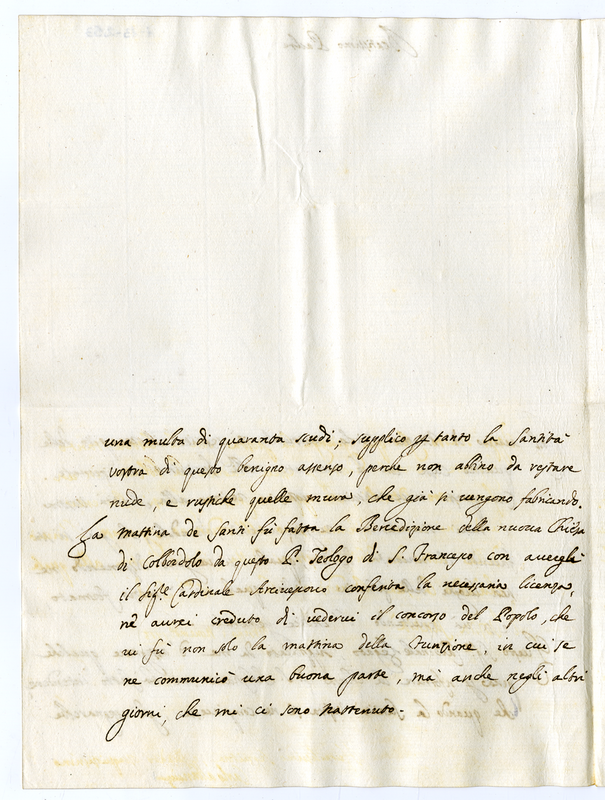 una multa di quaranta scudi, supplico p tanto la Santità
vostra di questo benigno assenso, perche non abbino da restare
nude, e rustiche quelle mura, che già si vengono fabricando.
La mattina de Santi fù fatta la Benedizione della nuova Chiesa
di Colbordolo da questo P. Teologo di S. Francesco con avergli
il Sig.e Cardinale Arcivescovo conferita la necessaria licenza,
nè avrei creduto di vedervi il concorso del Popolo, che
vi fù non solo la mattina della Funzione, in cui se
ne communicò una buona parte, mà anche negli altri
giorni, che mi ci sono trattenuto.